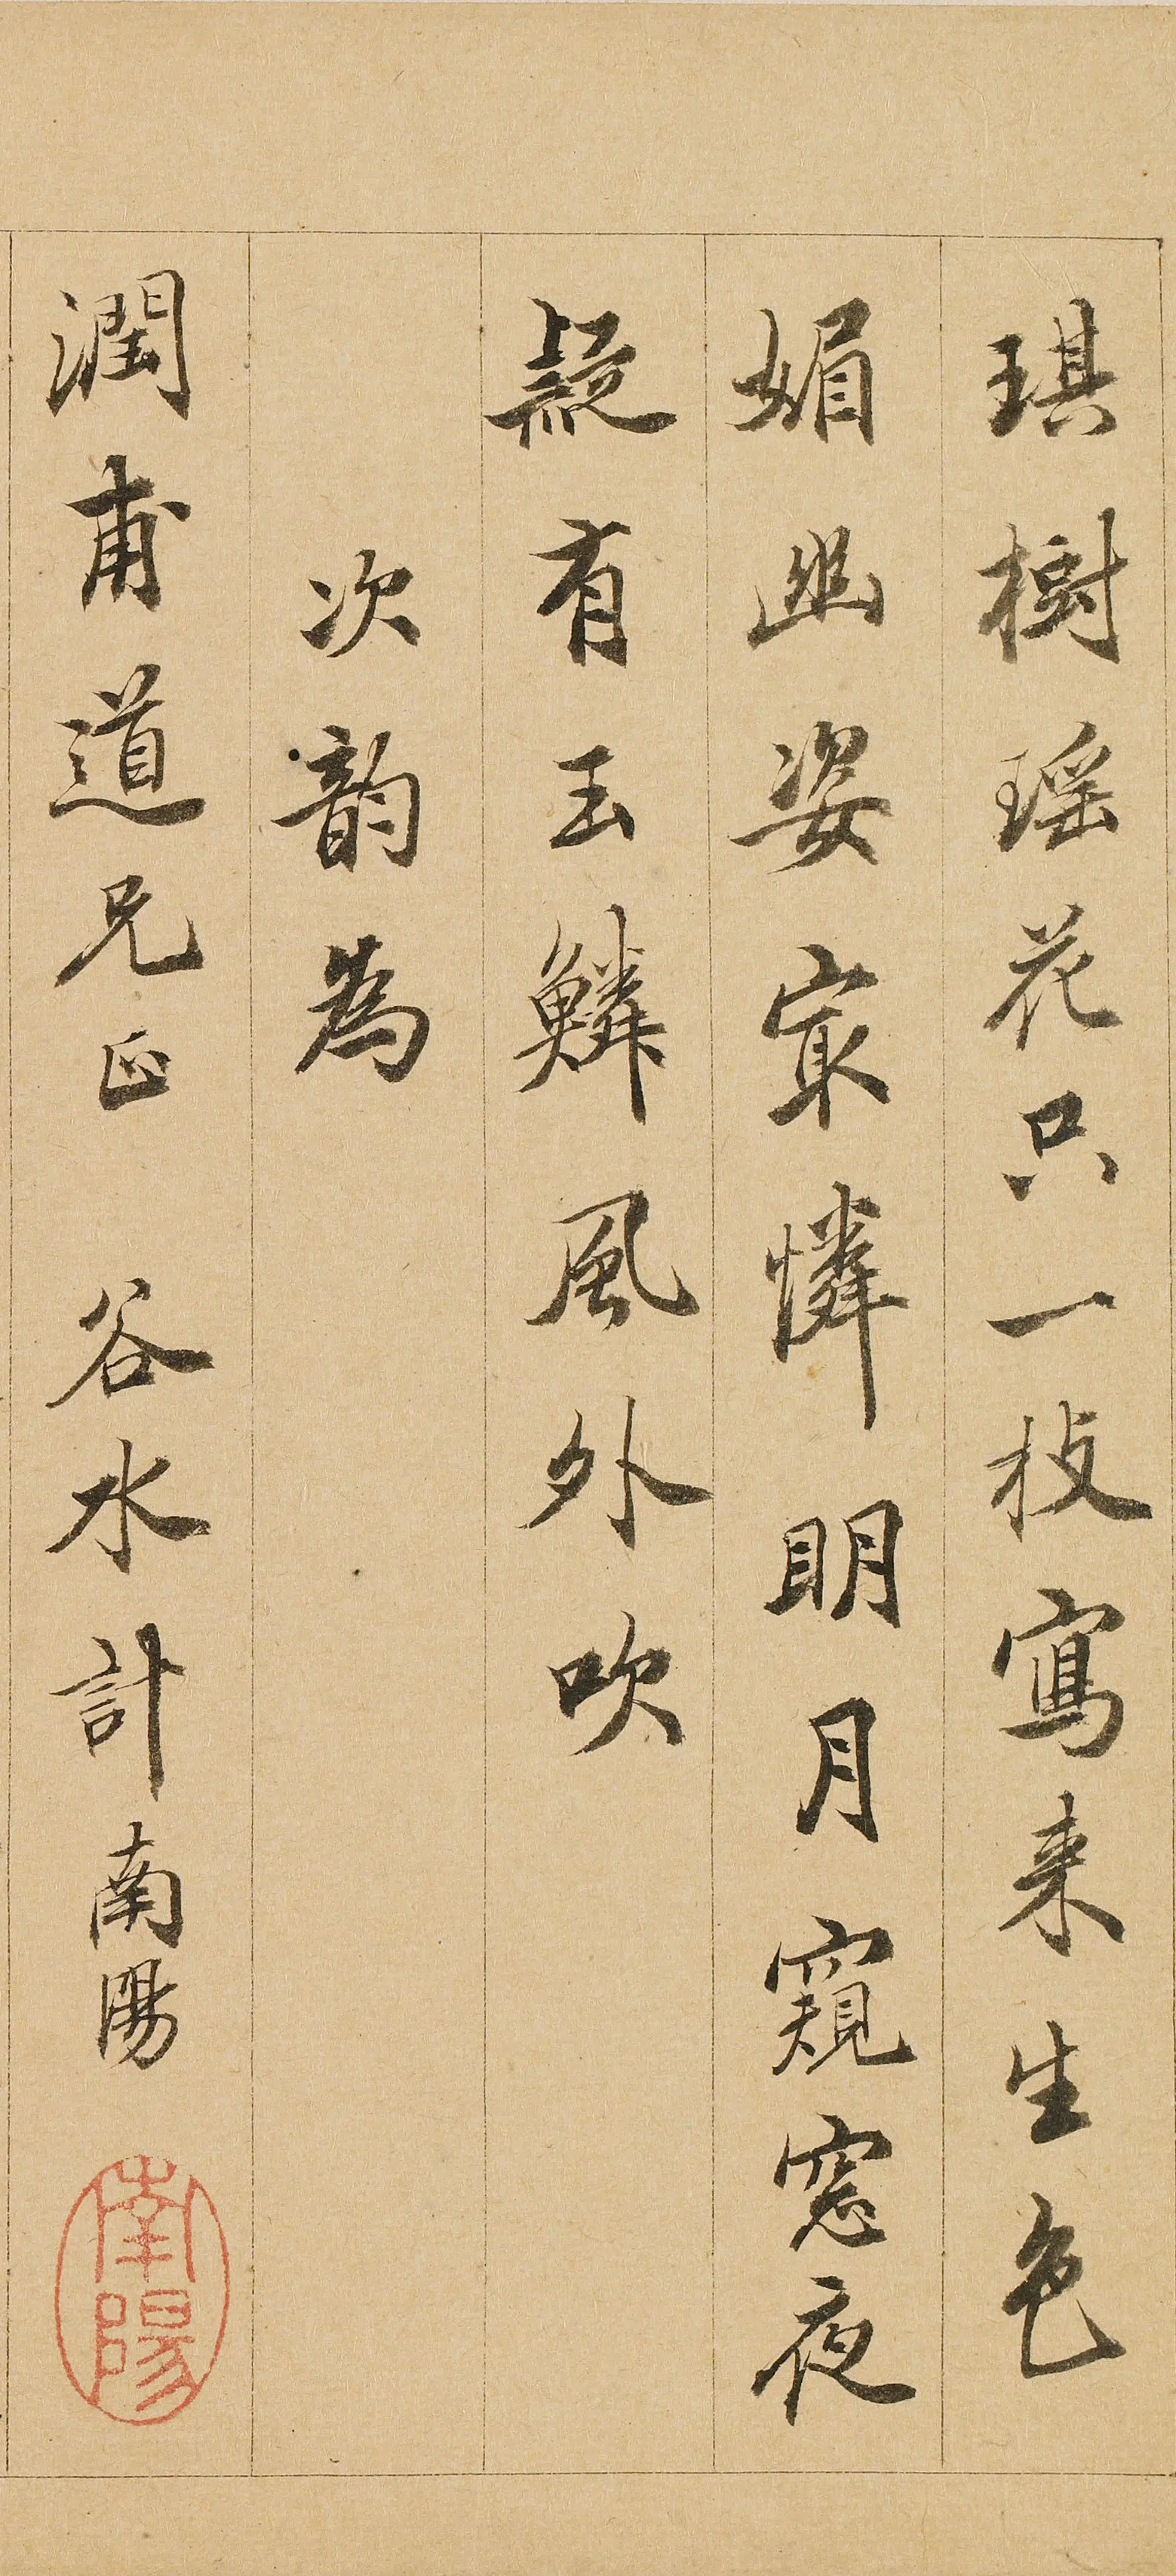 琪樹瑶花只一枝寫来生色
媚幽姿寂憐明月窺窓夜
疑有玉鱗風外吹
次韵為
潤甫道兄正 谷水計南陽
南陽